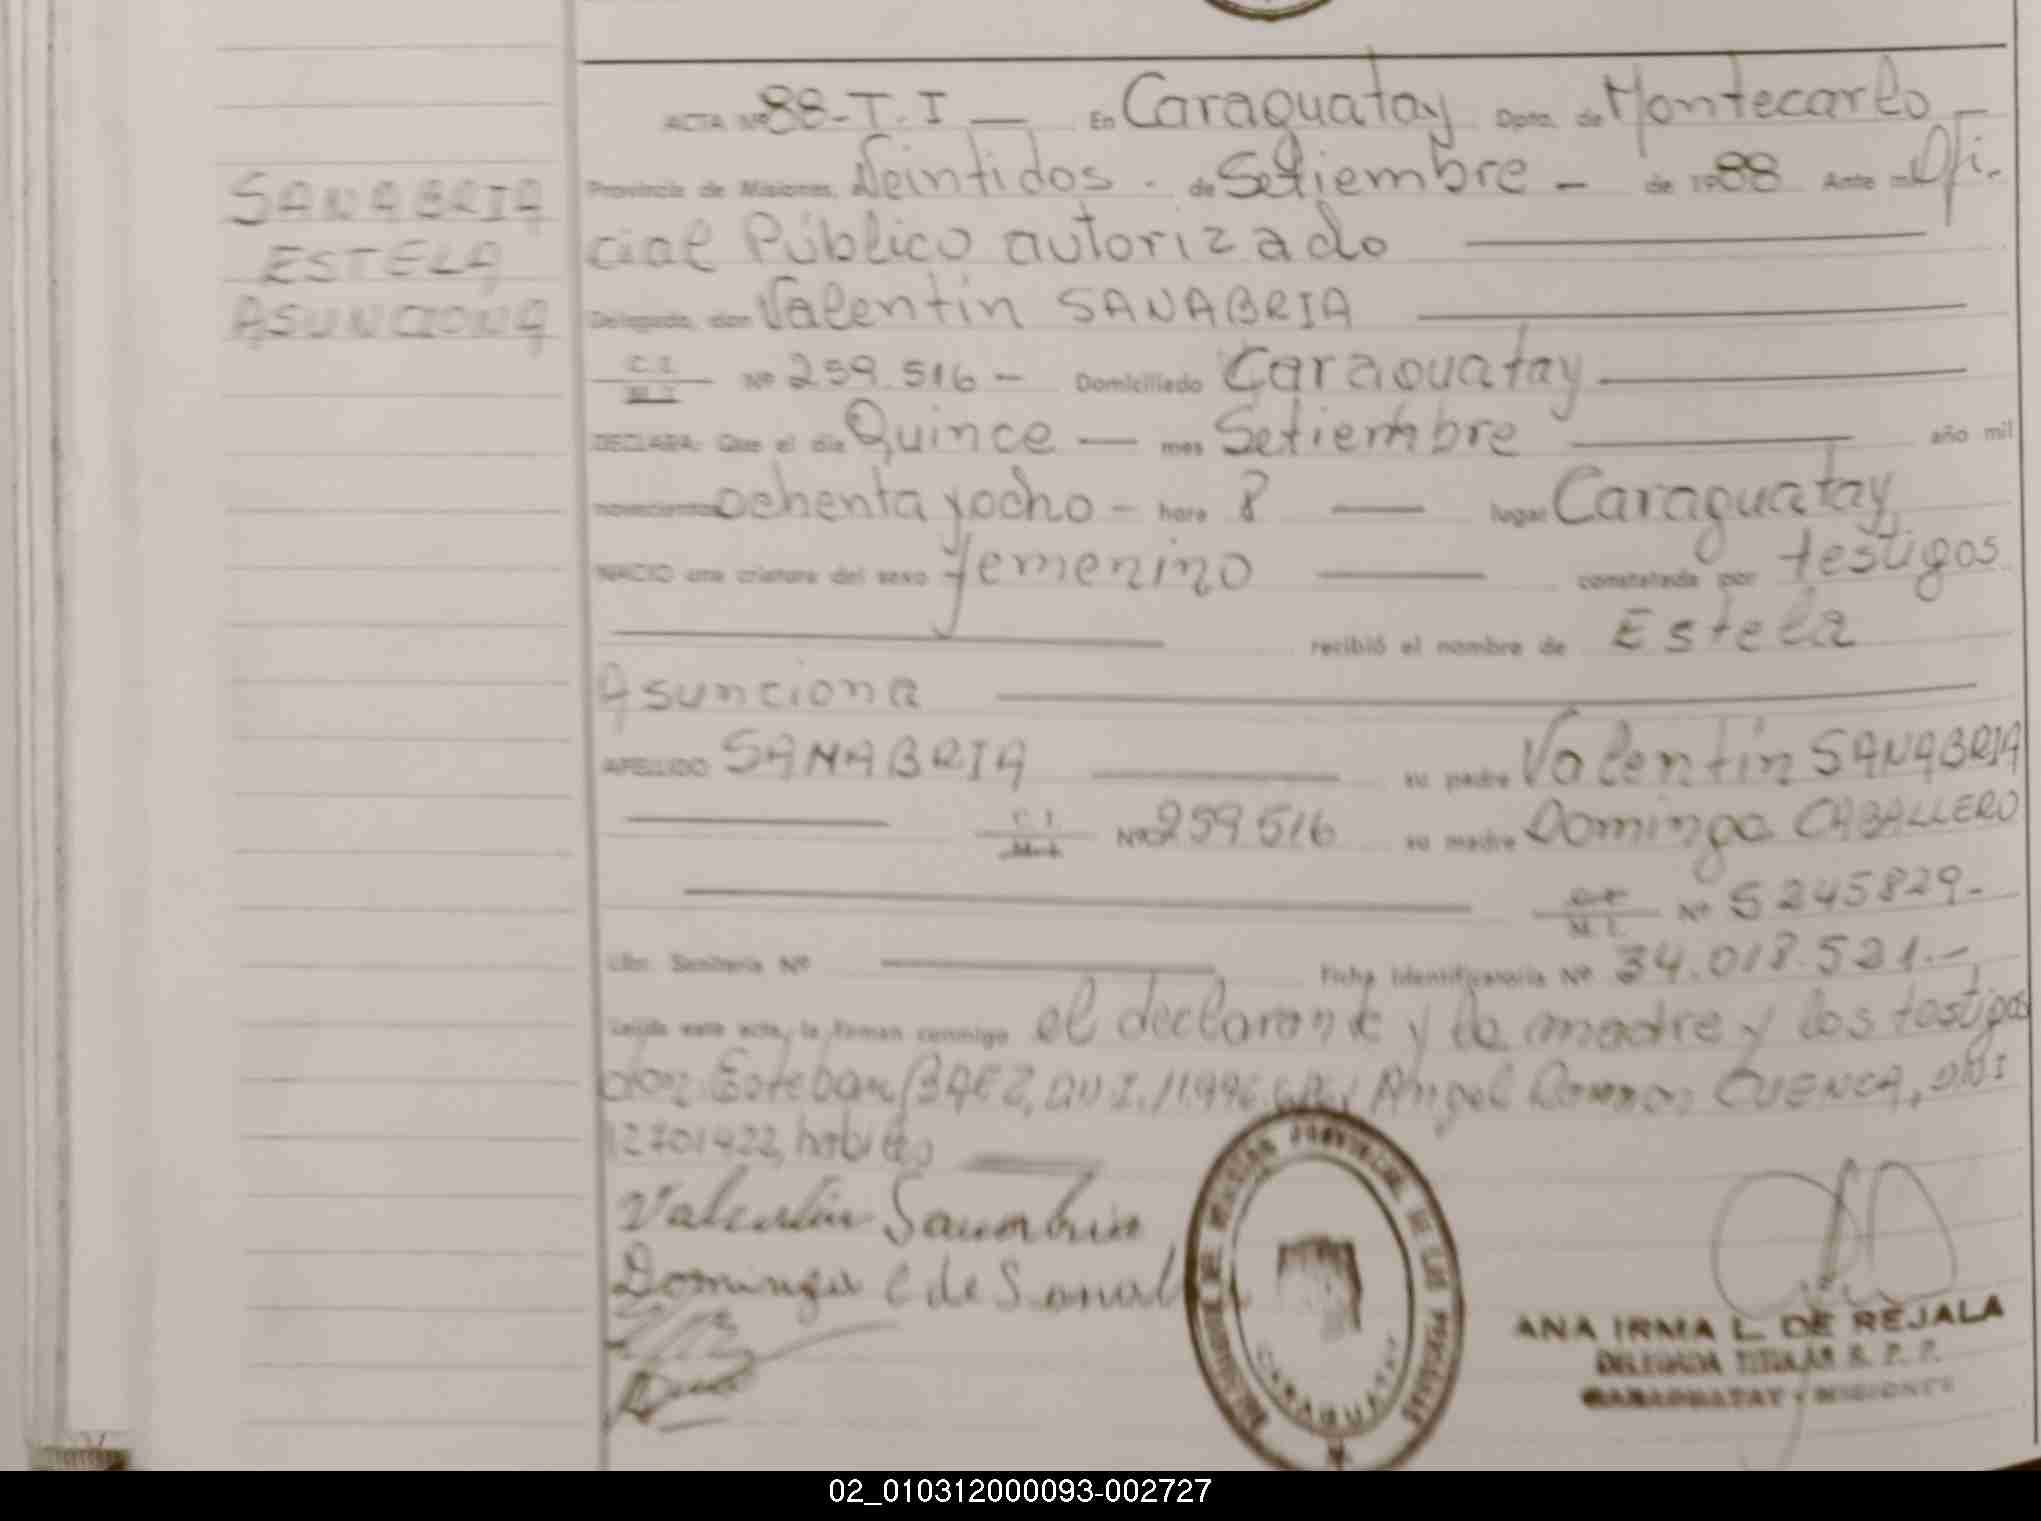 ACTA Nº 88-T.I — En Caraguatay Dpto. de Montecarlo
Provincia de Misiones, a Veintidos - de Setiembre - de 1988 Ante mi Ofi-
cial Público autorizado
Delegado, don Valentin SANABRIA
C.I.
M.I. Nº 259.516 - Domiciliado Caraguatay
DECLARA: Que el día Quince — mes Setiembre año mil
novecientos ochenta y ocho - hora 8 — lugar Caraguatay
NACIO una criatura del sexo femenino — constatada por testigos
recibió el nombre de Estela
Asunciona
APELLIDO SANABRIA — su padre Valentin SANABRIA
C.I.
M.I. Nº 259516 su madre Dominga CABALLERO
M.I. Nº 5245829-
Libr. Sanitaria Nº — Ficha Identificatoria Nº 34.018.521.-
Leída esta acta, la firman conmigo el declarante y la madre y los testigos
don Esteban BAEZ, Angel Ramon CUENCA, DNI
12701422, habiles
Valentin Sanabria
Dominga C de Sanab
SANABRIA
ESTELA
ASUNCIONA
CARAGUATAY
ANA IRMA L. DE REJALA
DELEGADA TITULAR R. P. P.
CARAGUATAY - MISIONES
02_010312000093-002727